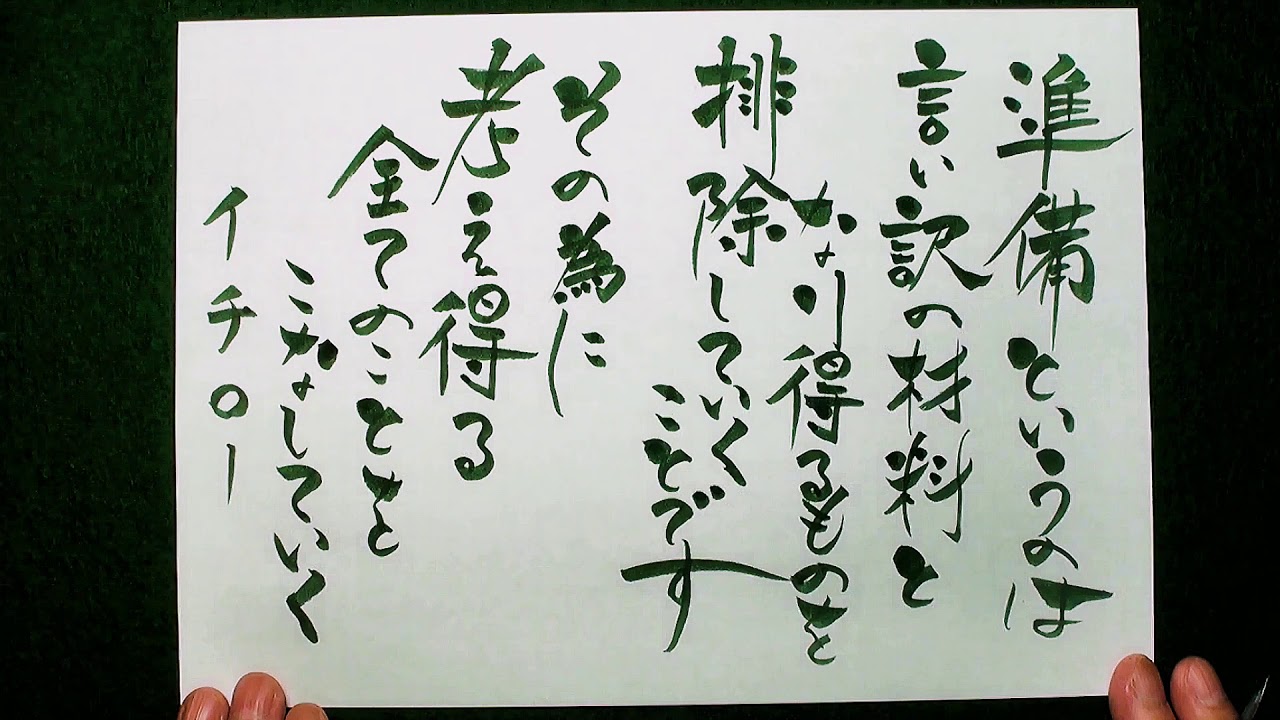 準備というのは
言い訳の材料と
なり得るものを
排除していく
ことです
その為に
考え得る
全てのことを
こなしていく
イチロー